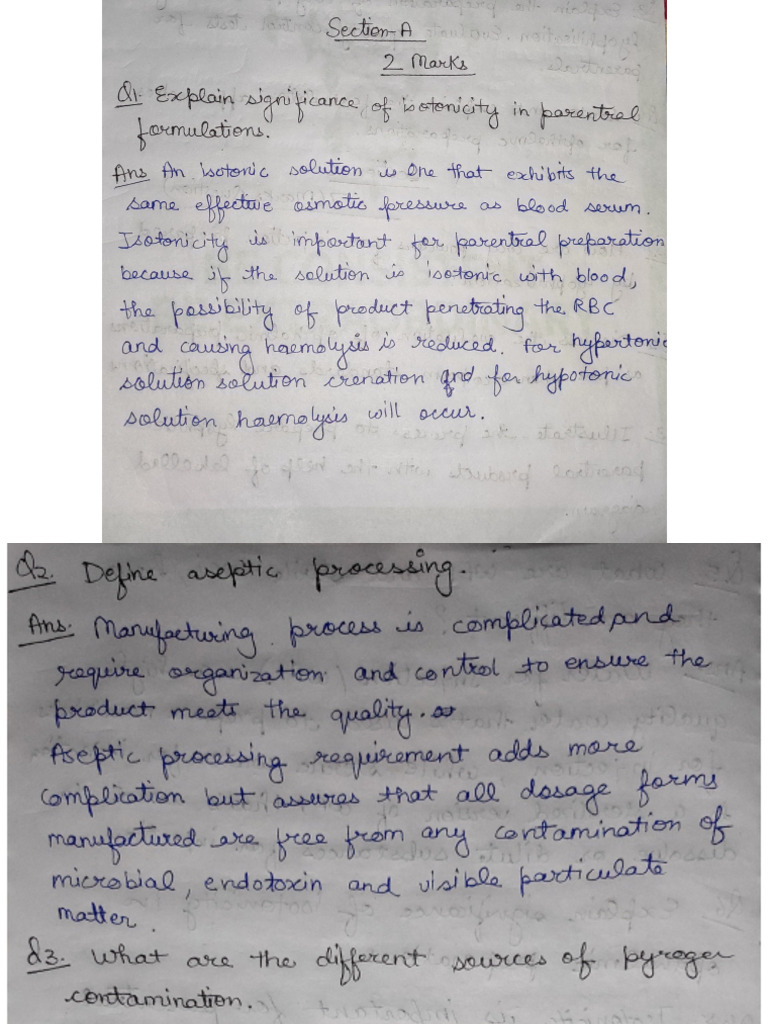 Section-A
2 Marks
Q1. Explain significance of isotonicity in parentral
formulations.
Ans An isotonic solution is one that exhibits the
same effective osmotic pressure as blood serum.
Isotonicity is important for parentral preparation
because if the solution is isotonic with blood,
the possibility of product penetrating the RBC
and causing haemolysis is reduced. for hypertonic
solution solution crenation and for hypotonic
solution haemolysis will occur.
Q2. Define aseptic processing.
Ans. Manufacturing process is complicated, and
require organization and control to ensure the
product meets the quality.
Aseptic processing requirement adds more
complication but assures that all dosage forms
manufactured are free from any contamination of
microbial, endotoxin and visible particulate
matter.
Q3. What are the different sources of pyrogen
contamination.